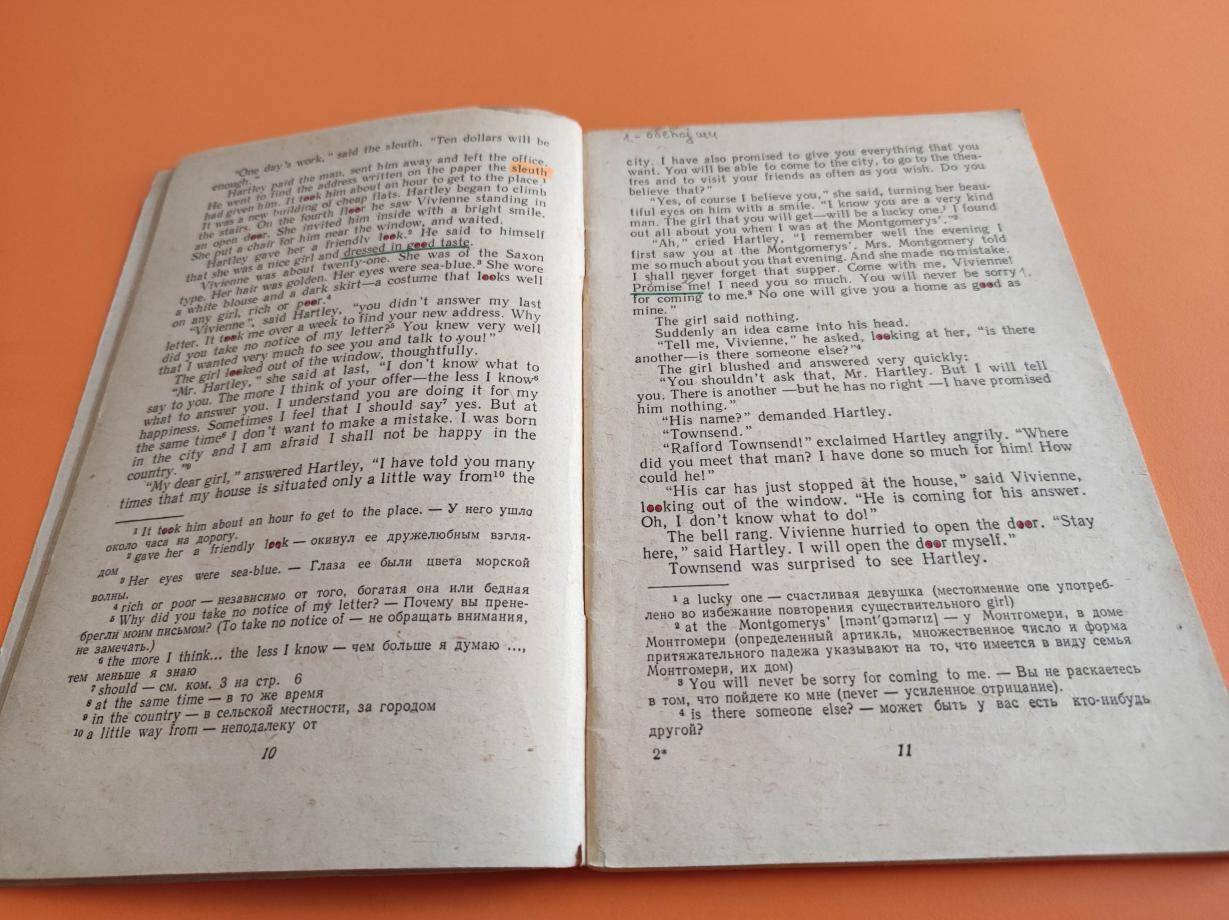 "One day's work," said the sleuth. "Ten dollars will be
enough."
Hartley paid the man, sent him away and left the office.
He went to find the address written on the paper the sleuth
had given him. It took him about an hour to get to the place.¹
It was a new building of cheap flats. Hartley began to climb
the stairs. On the fourth floor he saw Vivienne standing in
an open door. She invited him inside with a bright smile.
She put a chair for him near the window, and waited.
Hartley gave her a friendly look.² He said to himself
that she was a nice girl and dressed in good taste.
Vivienne was about twenty-one. She was of the Saxon
type. Her hair was golden. Her eyes were sea-blue.³ She wore
a white blouse and a dark skirt—a costume that looks well
on any girl, rich or poor.⁴
"Vivienne", said Hartley, "you didn't answer my last
letter. It took me over a week to find your new address. Why
did you take no notice of my letter?⁵ You knew very well
that I wanted very much to see you and talk to you!"
The girl looked out of the window, thoughtfully.
"Mr. Hartley," she said at last, "I don't know what to
say to you. The more I think of your offer—the less I know⁶
what to answer you. I understand you are doing it for my
happiness. Sometimes I feel that I should say⁷ yes. But at
the same time⁸ I don't want to make a mistake. I was born
in the city and I am afraid I shall not be happy in the
country."⁹
"My dear girl," answered Hartley, "I have told you many
times that my house is situated only a little way from¹⁰ the
¹ It took him about an hour to get to the place. — У него ушло
около часа на дорогу.
² gave her a friendly look — окинул ее дружелюбным взгля-
дом
³ Her eyes were sea-blue. — Глаза ее были цвета морской
волны.
⁴ rich or poor — независимо от того, богатая она или бедная
⁵ Why did you take no notice of my letter? — Почему вы прене-
брегли моим письмом? (To take no notice of — не обращать внимания,
не замечать.)
⁶ the more I think... the less I know — чем больше я думаю ...,
тем меньше я знаю
⁷ should — см. ком. 3 на стр. 6
⁸ at the same time — в то же время
⁹ in the country — в сельской местности, за городом
¹⁰ a little way from — неподалеку от
10
city. I have also promised to give you everything that you
want. You will be able to come to the city, to go to the thea-
tres and to visit your friends as often as you wish. Do you
believe that?"
"Yes, of course I believe you," she said, turning her beau-
tiful eyes on him with a smile. "I know you are a very kind
man. The girl that you will get—will be a lucky one.¹ I found
out all about you when I was at the Montgomerys'."²
"Ah," cried Hartley, "I remember well the evening I
first saw you at the Montgomerys'. Mrs. Montgomery told
me so much about you that evening. And she made no mistake.
I shall never forget that supper. Come with me, Vivienne!
Promise me! I need you so much. You will never be sorry 1.
for coming to me.³ No one will give you a home as good as
mine."
The girl said nothing.
Suddenly an idea came into his head.
"Tell me, Vivienne," he asked, looking at her, "is there
another—is there someone else?"⁴
The girl blushed and answered very quickly:
"You shouldn't ask that, Mr. Hartley. But I will tell
you. There is another —but he has no right —I have promised
him nothing."
"His name?" demanded Hartley.
"Townsend."
"Rafford Townsend!" exclaimed Hartley angrily. "Where
did you meet that man? I have done so much for him! How
could he!"
"His car has just stopped at the house," said Vivienne,
looking out of the window. "He is coming for his answer.
Oh, I don't know what to do!"
The bell rang. Vivienne hurried to open the door. "Stay
here," said Hartley. I will open the door myself."
Townsend was surprised to see Hartley.
¹ a lucky one — счастливая девушка (местоимение one употреб-
лено во избежание повторения существительного girl)
² at the Montgomerys' [mənt'gɔmərɪz] — у Монтгомери, в доме
Монтгомери (определенный артикль, множественное число и форма
притяжательного падежа указывают на то, что имеется в виду семья
Монтгомери, их дом)
³ You will never be sorry for coming to me. — Вы не раскаетесь
в том, что пойдете ко мне (never — усиленное отрицание).
⁴ is there someone else? — может быть у вас есть кто-нибудь
другой?
2*
11